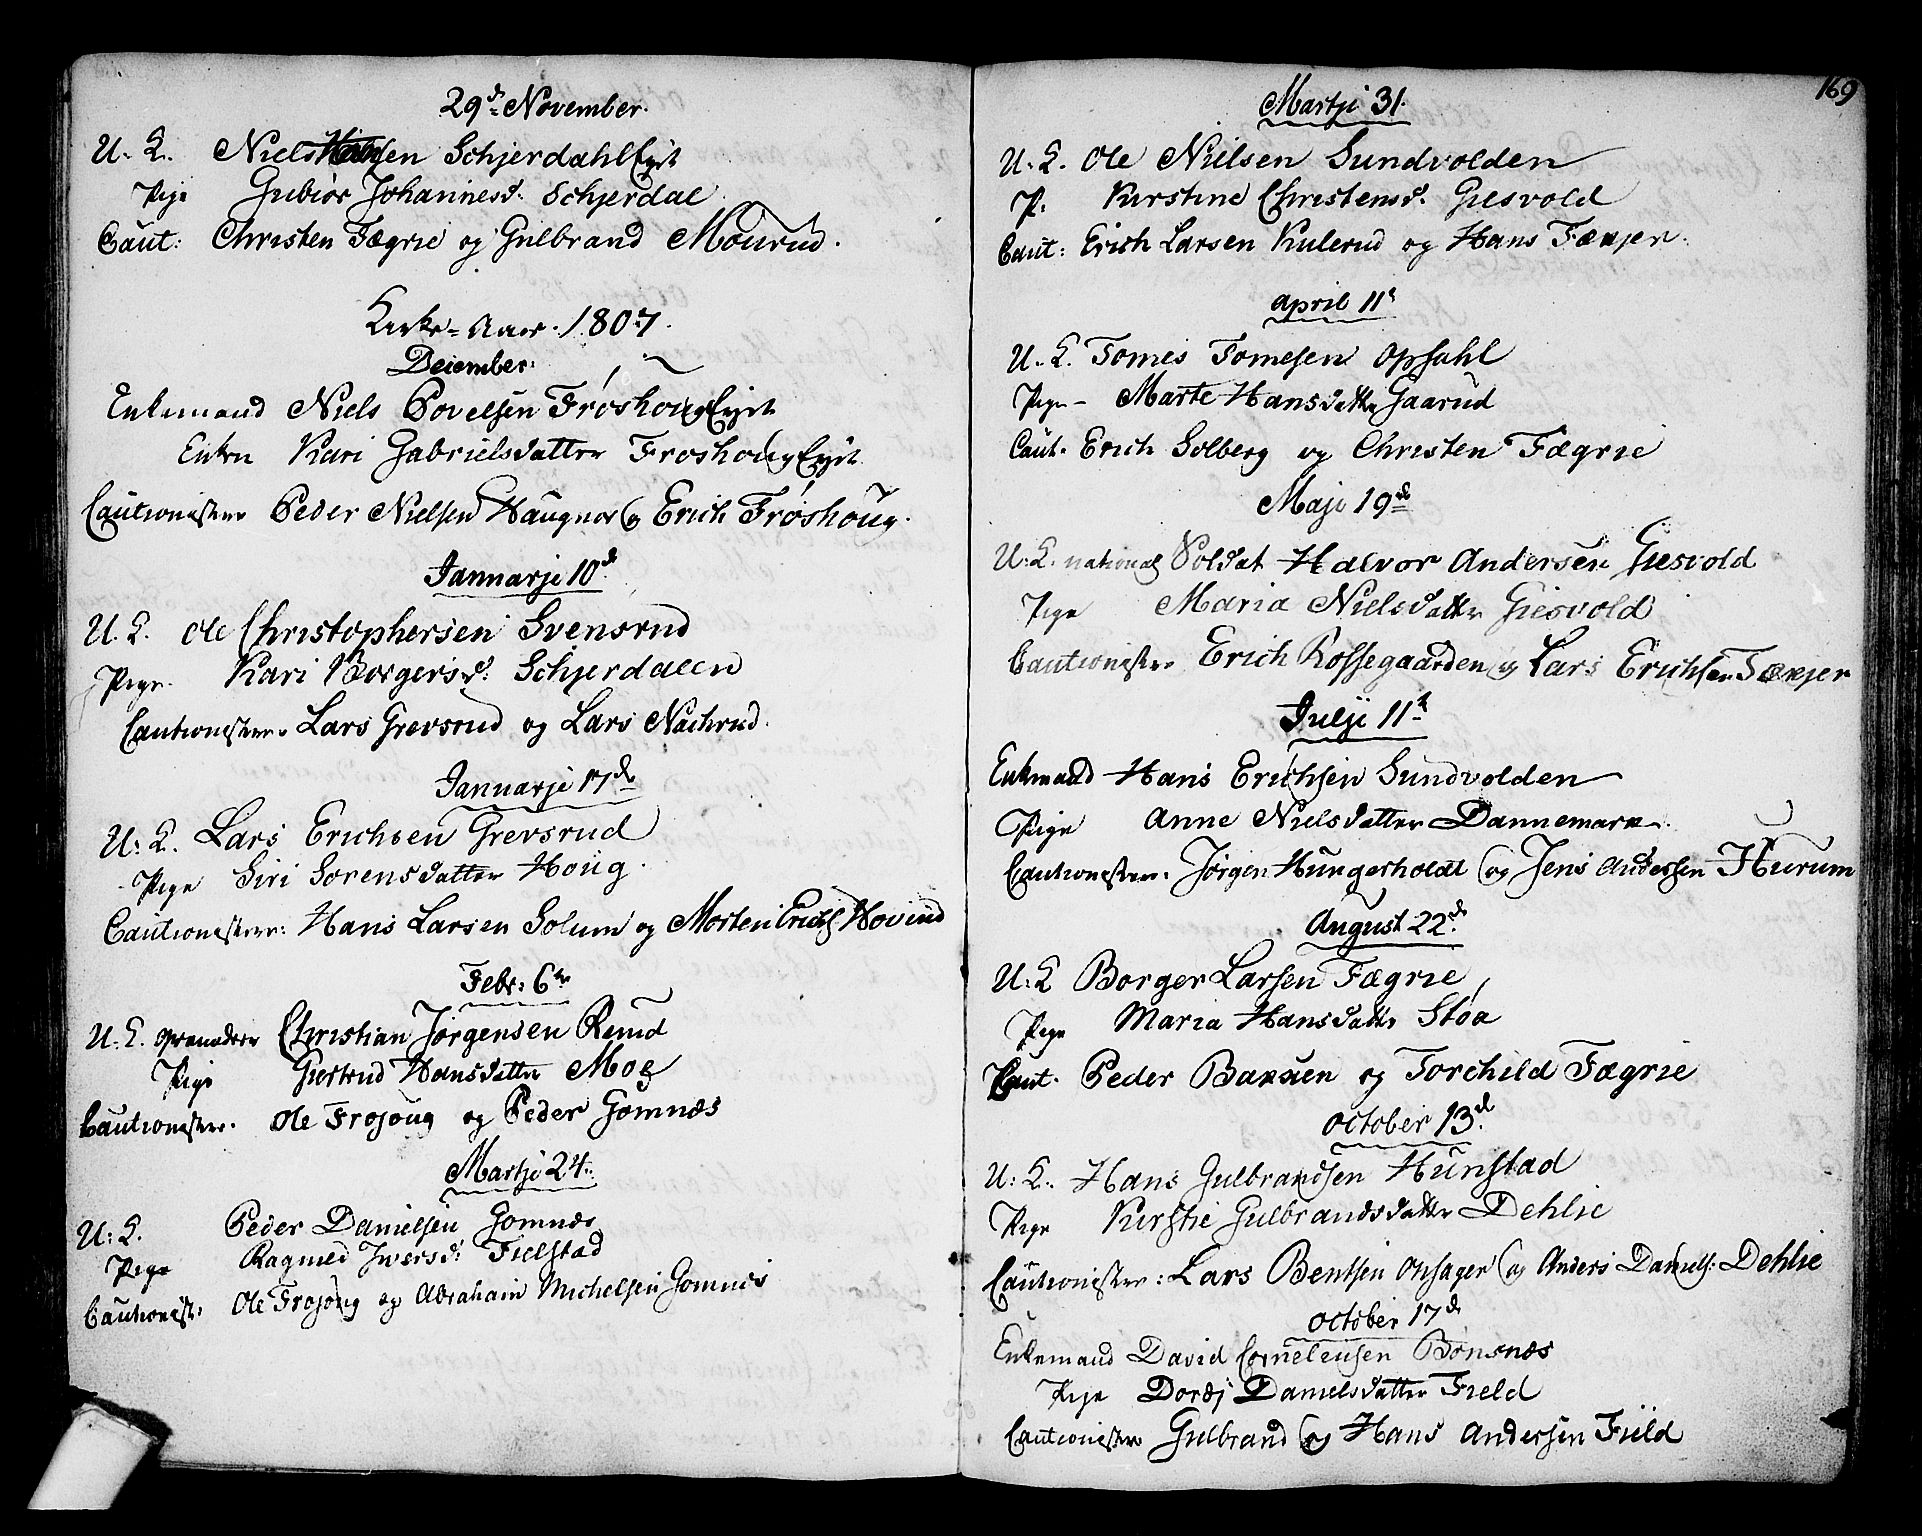 29de November.
U. K. Niels Schjerdahl Eyet
Pige Gubiør Johannesd. Schjerdal
Caut: Christen Fægrie og Gulbrand Mourud.
Kirke-Aar 1807.
December.
Enkemand Niels Povelsen Frøshoug Eyet
Enken Kari Gabrielsdatter Froshoug Eyet
Cautionister Peder Nielsen Haugnor og Erich Frøshoug.
Januarji 10d.
U. K. Ole Christophersen Svensrud
Pige Kari Borgersd: Schjerdalen
Cautionister. Lars Grevsrud og Lars Nachrud.
Januarji 17de
U: K. Lars Erichsen Grevsrud
Pige Siri Sorensdatter Houg.
Cautionister: Hans Larsen Solum og Morten Erichs Hovind
Febr: 6te
U. K. Christian Jørgensen Rund
Pige Giertrud Hansdatter Moe
Cautionister. Ole Frosoug og Peder Gomnæs
Martji 24.
U: K. Peder Danielsen Gomnæs
Pige Ragnild Iversd: Fielstad
Cautionist: Ole Frosoug og Abraham Michelsen Gomnes
169
Martji 31.
U. K. Ole Nielsen Sundvolden
P. Kirstine Christensd. Giesvold
Caut: Erich Larsen Kulerud og Hans Fæxjer.
April 11t
U. K. Tomes Tomesen Opsahl
Pige - Marte Hansdatter Gaarud
Caut. Erich Solberg og Christen Fægrie
Maji 19de
U. K. national Soldat Halvor Andersen Giesvold
Pige Maria Nielsdatter Giesvold
Cautionister Erich Rossegaarden og Lars Erichsen Fæxjer
Julji 11t
Enkemand Hans Erichsen Sundvolden
Pige Anne Nielsdatter Dannemark
Cautionister. Jørgen Hungerholdt og Jens Andersen Hurum
August 22d.
U. K Borger Larsen Fægrie
Pige Maria Hansdatter Støa
Caut. Peder Baxsen og Torchild Fægrie
October 13d.
U: K. Hans Gulbrandsen Hunstad
Pige Kirstie Gulbrandsdatter Dehlie
Cautionister: Lars Bentsen Onsager og Anders Daniels: Dehlie
October 17de
Enkemand David Corneliusen Bonsnæs
Pige Doræj Danielsdatter Field
Cautionister Gulbrand og Hans Andersen Field